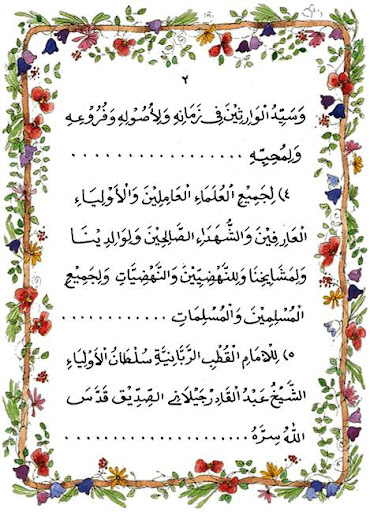 ٢
وَسَيِّدُ الْوَارِثِيْنَ فِيْ زَمَانِهِ وَلِأُصُوْلِهِ وَفُرُوْعِهِ
وَلِمُحِبِّهِ ....................
٤) لِجَمِيْعِ الْعُلَمَاءِ الْعَامِلِيْنَ وَالْأَوْلِيَاءِ
الْعَارِفِيْنَ وَالشُّهَدَاءِ الصَّالِحِيْنَ وَلِوَالِدِيْنَا
وَلِمَشَايِخِنَا وَلِلنَّهْضِيِّيْنَ وَالنَّهْضِيَّاتِ وَلِجَمِيْعِ
الْمُسْلِمِيْنَ وَالْمُسْلِمَاتِ .............
٥) لِلْاِمَامِ الْقُطْبِ الرَّبَّانِيَّةِ سُلْطَانُ الْأَوْلِيَاءِ
الشَّيْخُ عَبْدُ الْقَادِرْ جَيْلَانِي الصِّدِّيْقِ قَدَّسَ
اللهُ سِرَّهُ ....................